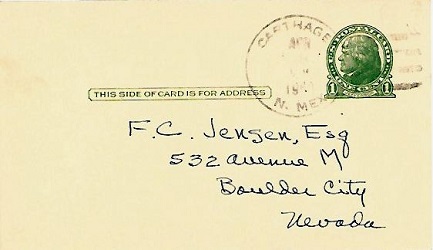 CARTHAGE
APR
N. MEX.
1
1
THIS SIDE OF CARD IS FOR ADDRESS
F.C. Jensen, Esq
532 avenue M
Boulder City
Nevada